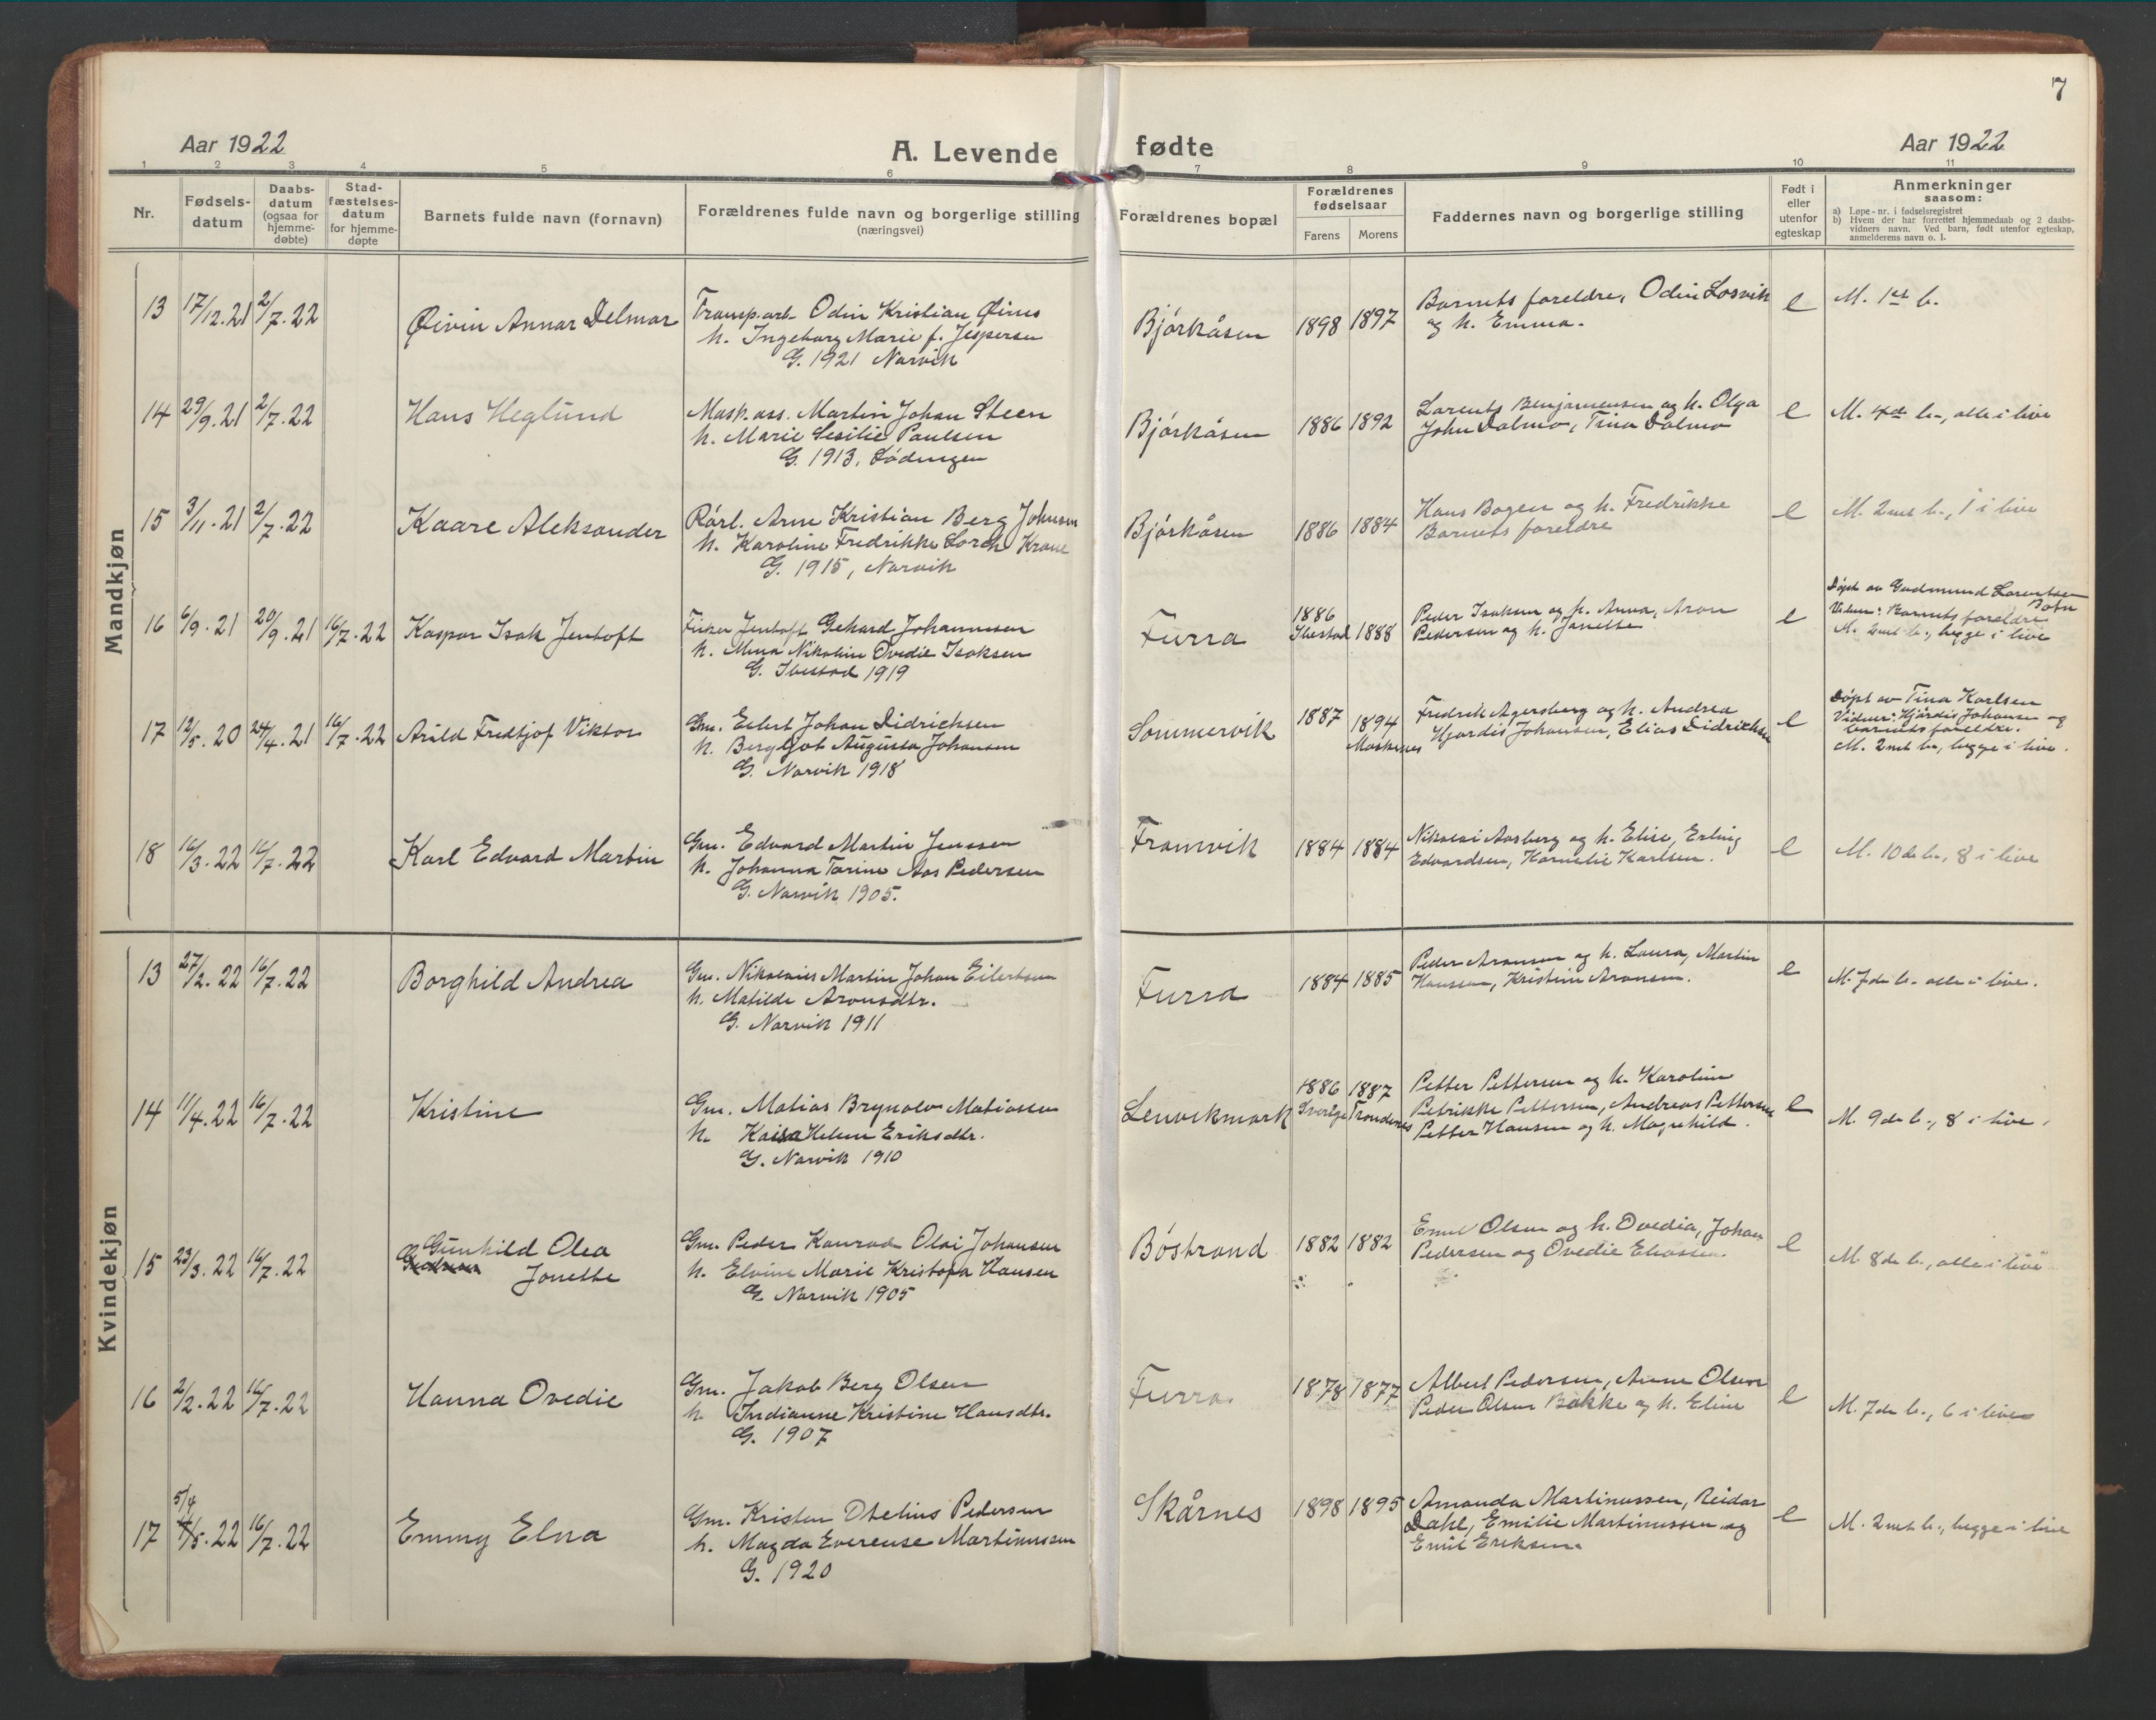 7
Aar 1922
A. Levende fødte
Aar 1922
1 2 3 4 5 6 7 8 9 10 11
Nr.
Fødsels-
datum
Daabs-
datum
(ogsaa for
hjemme-
døbte)
Stad-
fæstelses-
datum
for hjemme-
døpte
Barnets fulde navn (fornavn)
Forældrenes fulde navn og borgerlige stilling
(næringsvei)
Forældrenes bopæl
Forældrenes
fødselsaar
Farens Morens
Faddernes navn og borgerlige stilling
Født i
eller
utenfor
egteskap
Anmerkninger
saasom:
a) Løpe-nr. i fødselsregistret
b) Hvem der har forrettet hjemmedaab og 2 daabs-
vidners navn. Ved barn, født utenfor egteskap,
anmelderens navn o. l.
Mandkjøn
13 17/12.21 2/7.22
Øivin Annar Delmar
Transp.arb. Odin Kristian Øines
h. Ingeborg Marie f. Jespersen
G. 1921 Narvik
Bjørkåsen
1898 1897
Barnets foreldre, Odin Losvik
og h. Emma.
e
M. 1st b.
14 29/9.21 2/7.22
Hans Heglund
Mask.ass. Martin Johan Steen
h. Marie Sesilie Paulsen
G. 1913, Lødingen
Bjørkåsen
1886 1892
Lorents Benjaminsen og h. Olga
John Dalmo, Tina Dalmo
e
M. 4de b., alle i live
15 3/11.21 2/7.22
Kaare Aleksander
Rørl. Arne Kristian Berg Johnsen
h. Karoline Fredrikke Lorch Krane
G. 1915, Narvik
Bjørkåsen
1886 1884
Hans Bogen og h. Fredrikke
Barnets foreldre
e
M. 2net b., 1 i live
16 6/9.21 20/9.21 16/7.22
Kaspar Isak Jentoft
Fisker Jentoft Gehard Johannesen
h. Mina Nikoline Ovedie Isaksen
G. Ibestad 1919
Furra
1886
Ibestad 1888
Peder Isaksen og h. Anna, Aron
Pedersen og h. Janette
e
Døpt av Gudmund Lorentsen
Botn
Vidner: Barnets foreldre
M. 2net b., begge i live
17 12/5.20 24/4.21 16/7.22
Arild Fredtjof Viktor
Gm. Eilert Johan Didrichsen
h. Bergljot Augusta Johansen
G. Narvik 1918
Sommervik
1887 1894
Moskenes
Fredrik Agersborg og h. Andrea
Hjørdis Johansen, Elias Didrichsen
e
Døpt av Tina Karlsen
Vidner: Hjørdis Johansen og
barnets foreldre.
M. 2net b., begge i live.
18 16/3.22 16/7.22
Karl Edvard Martin
Gm. Edvard Martin Jenssen
h. Johanna Tarine Aas Pedersen
G. Narvik 1905.
Framvik
1884 1884
Nikolai Aasberg og h. Elise, Erling
Edvardsen, Kornelie Karlsen.
e
M. 10de b., 8 i live
Kvindekjøn
13 27/2.22 16/7.22
Borghild Andrea
Gm. Nikolaies Martin Johan Eilertsen
h. Matilde Aronsdtr.
G. Narvik 1911
Furra
1884 1885
Peder Aronsen og h. Laura, Martin
Hanssen, Kristine Aronsen.
e
M. 7de b. alle i live.
14 11/4.22 16/7.22
Kristine
Gm. Matias Brynolv Matiassen
h. Kaisa Helene Eriksdtr.
G. Narvik 1910
Lenvikmark
1886 1887
Sverige Trondenes
Petter Pettersen og h. Karoline
Petrikke Pettersen, Andreas Pettersen
Petter Hansen og h. Magnhild.
e
M. 9de b., 8 i live.
15 23/3.22 16/7.22
Gunhild Olea
Jonette
Gm. Peder Konrad Olai Johansen
h. Elvine Marie Kristofa Hansen
G. Narvik 1905
Bøstrand
1882 1882
Emil Olsen og h. Ovedia, Johan
Pedersen og Ovedie Eliassen.
e
M. 8de b., alle i live
16 2/2.22 16/7.22
Hanna Ovedie
Gm. Jakob Berg Olsen
h. Indianne Kristine Hansdtr.
G. 1907
Furra.
1878 1877
Albert Pedersen, Anne Olsen
Peder Olsen Bakke og h. Eline
e
M. 7de b., 6 i live
17 5/4 /5.22 16/7.22
Emmy Elna
Gm. Kristen Otelius Pedersen
h. Magda Everense Martinussen
G. 1920
Skårnes
1898 1895
Amanda Martinussen, Reidar
Dahl, Emilie Martinussen og
Emil Eriksen.
e
M. 2net b., begge i live